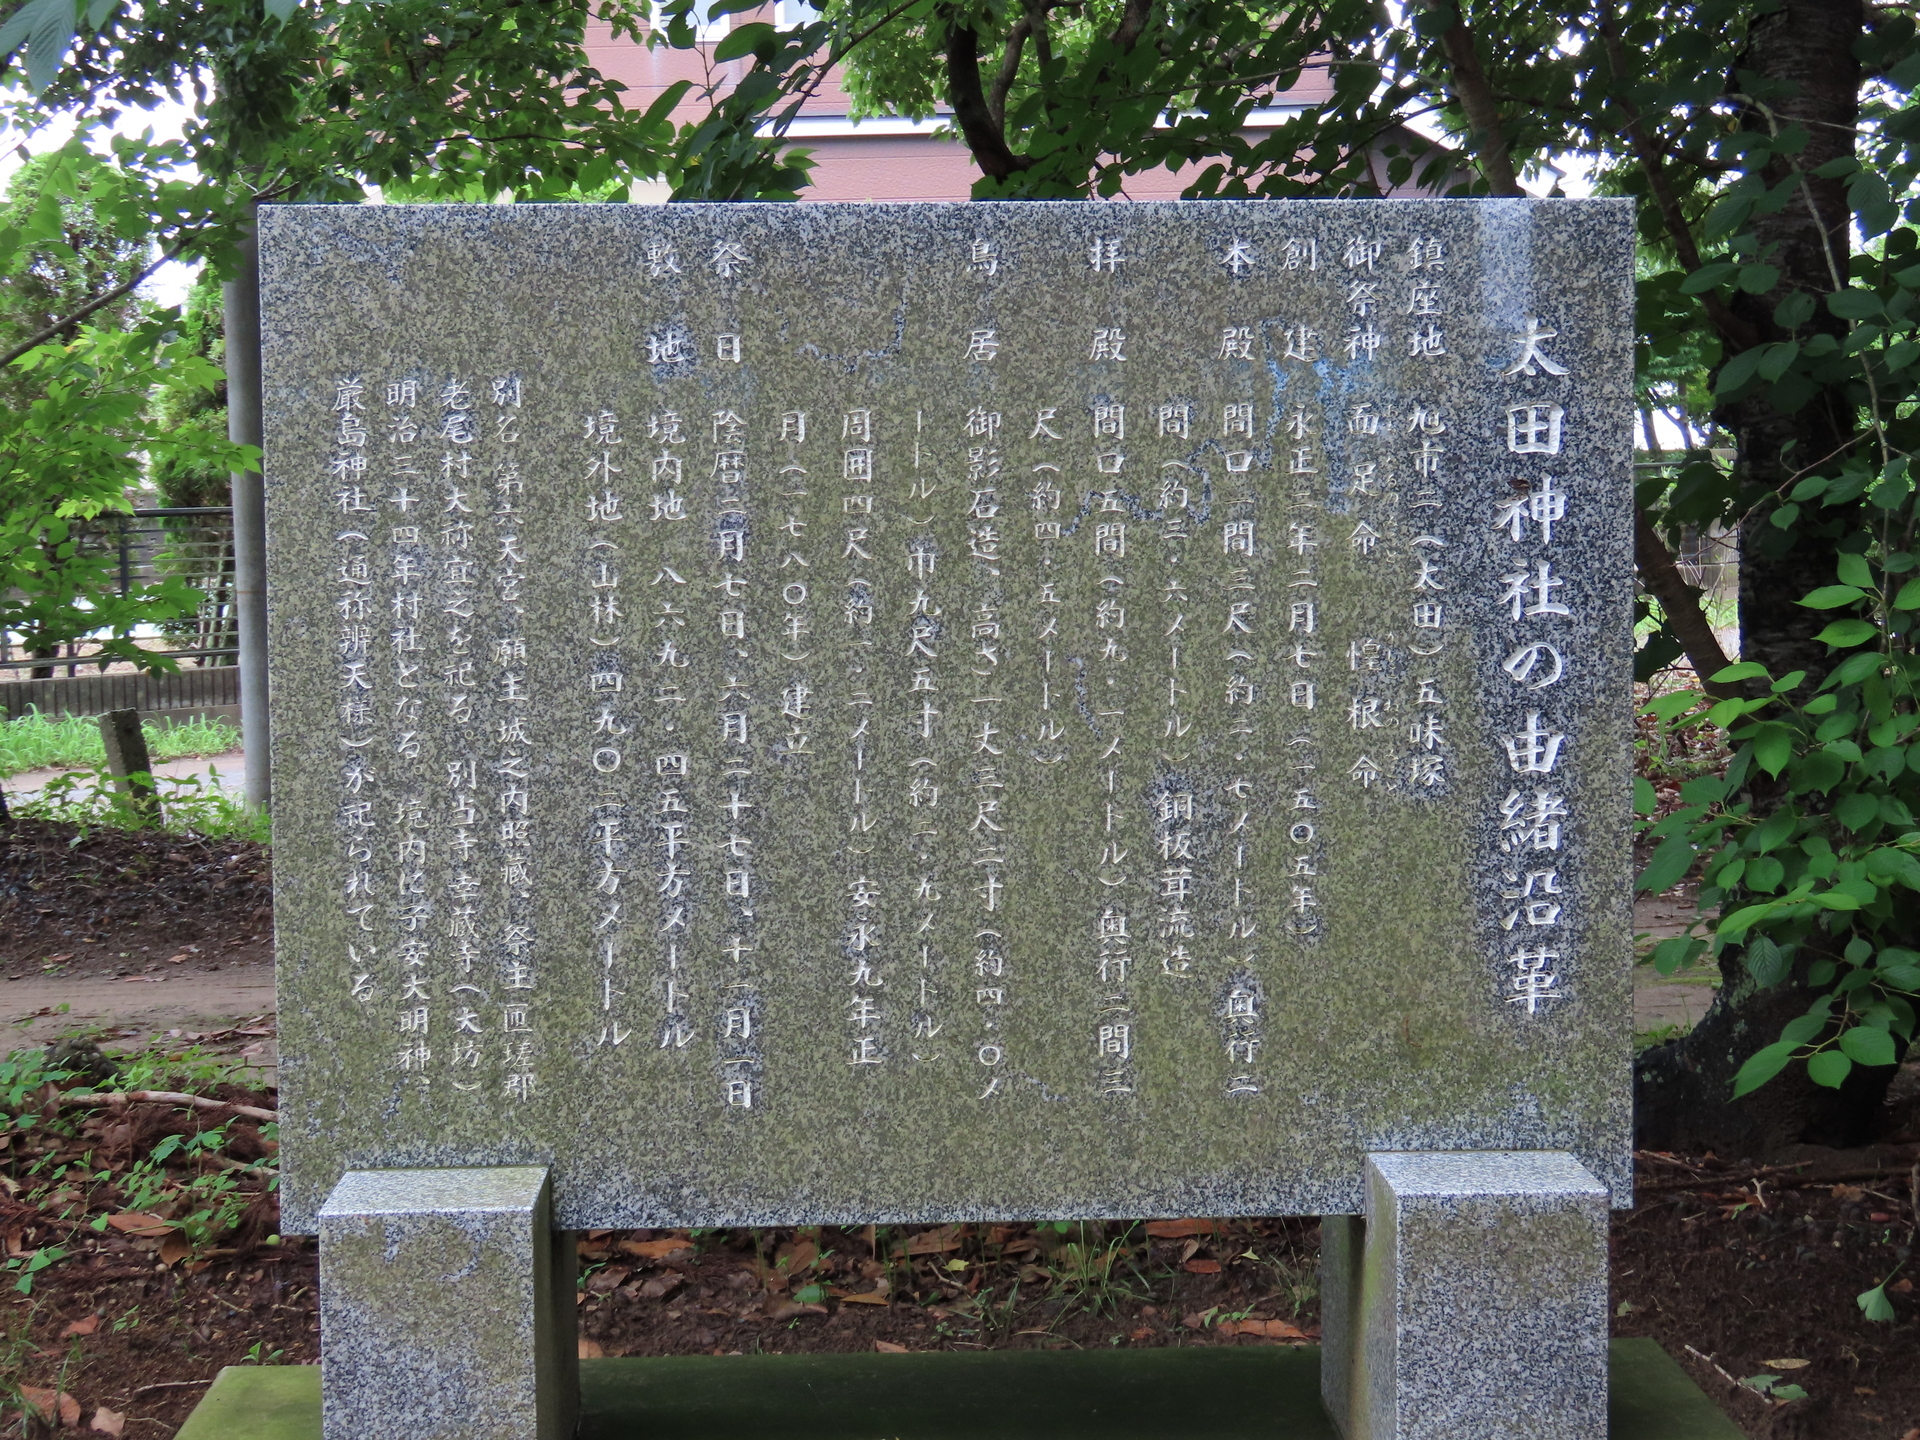 太田神社の由緒沿革
鎮座地 旭市ニ(太田)五味塚
御祭神 面足命 惶根命
創建 永正二年二月七日(一五〇五年)
本殿 間口一間三尺(約二・七メートル)奥行二
間(約三・六メートル)銅板葺流造
拝殿 間口五間(約九・一メートル)奥行二間三
尺(約四・五メートル)
鳥居 御影石造、高さ一丈三尺二寸(約四・〇メ
ートル)巾九尺五寸(約二・九メートル)
周囲四尺(約一・二メートル)安永九年正
月(一七八〇年)建立
祭日 陰暦二月七日、六月二十七日、十一月一日
敷地 境内地 八六九二・四五平方メートル
境外地(山林)四九〇二平方メートル
別名 第六天宮、願主城之内照蔵、祭主匝瑳郡
老尾村大祢宜之を祀る。別当寺幸蔵寺(大坊)
明治三十四年村社となる。境内に子安大明神、
厳島神社(通称辨天様)が祀られている。